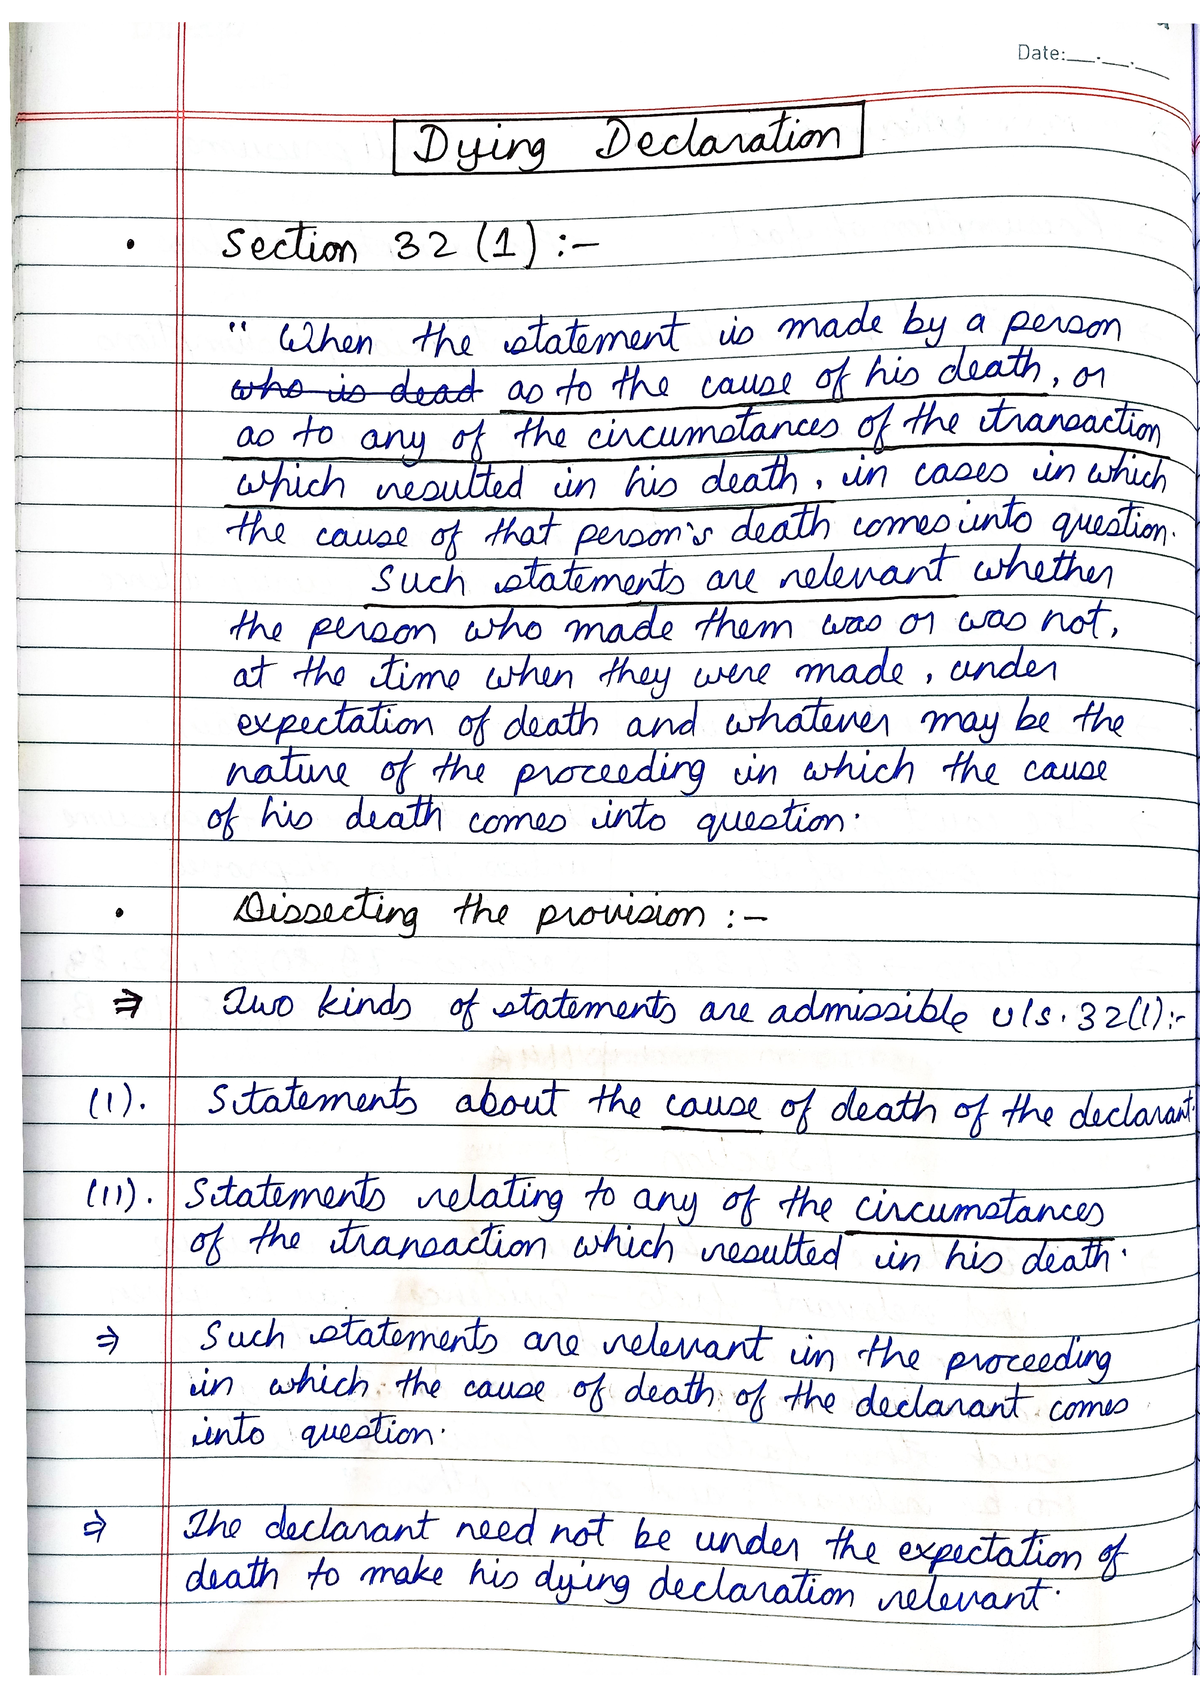 Date:__.__.__
Dying Declaration
• Section 32 (1) :-
" When the statement is made by a person
~~who is dead~~ as to the cause of his death, or
as to any of the circumstances of the transaction
which resulted in his death, in cases in which
the cause of that person's death comes into question.
Such statements are relevant whether
the person who made them was or was not,
at the time when they were made, under
expectation of death and whatever may be the
nature of the proceeding in which the cause
of his death comes into question.
• Dissecting the provision :-
⇒ Two kinds of statements are admissible u/s. 32(1):-
(I). Statements about the cause of death of the declarant.
(II). Statements relating to any of the circumstances
of the transaction which resulted in his death.
⇒ Such statements are relevant in the proceeding
in which the cause of death of the declarant comes
into question.
⇒ The declarant need not be under the expectation of
death to make his dying declaration relevant.